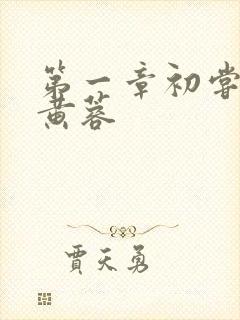 第一章初尝
黄蓉
贾天勇